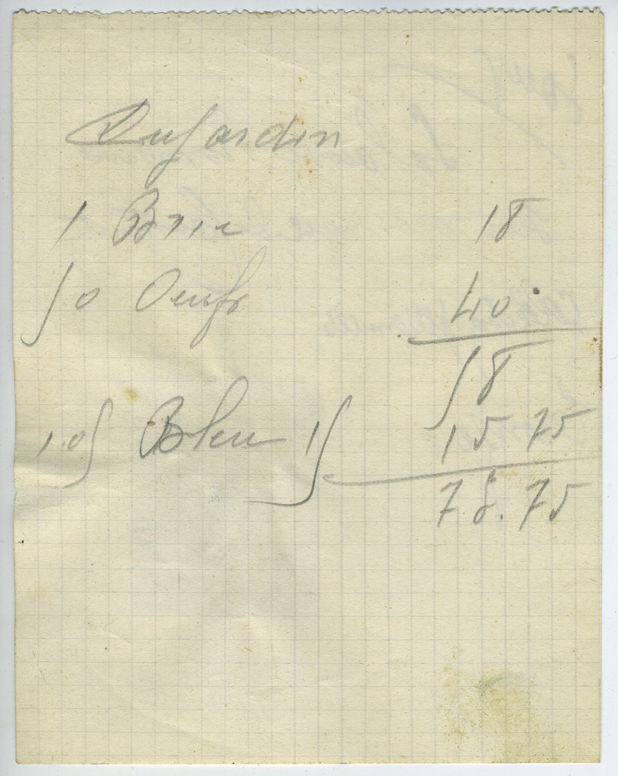 Dujardin
1 Brie 18
50 Oeufs 40.
58
1.05 Bleu 15 15 75
73.75